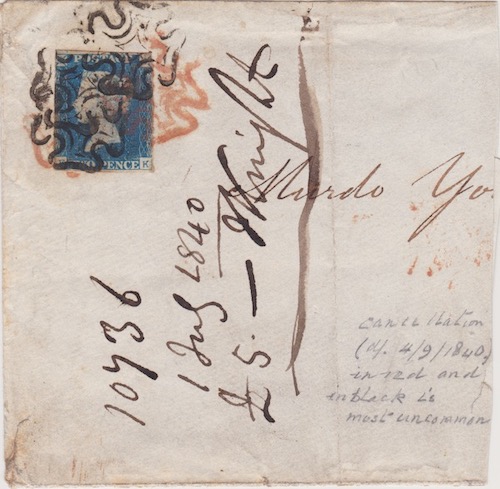 POSTAGE
TWO PENCE
K
Murdo Yo
10736
1 July 1840
£5.—
Knight
cancellation
4/9/1840,
in red and
in black is
most uncommon